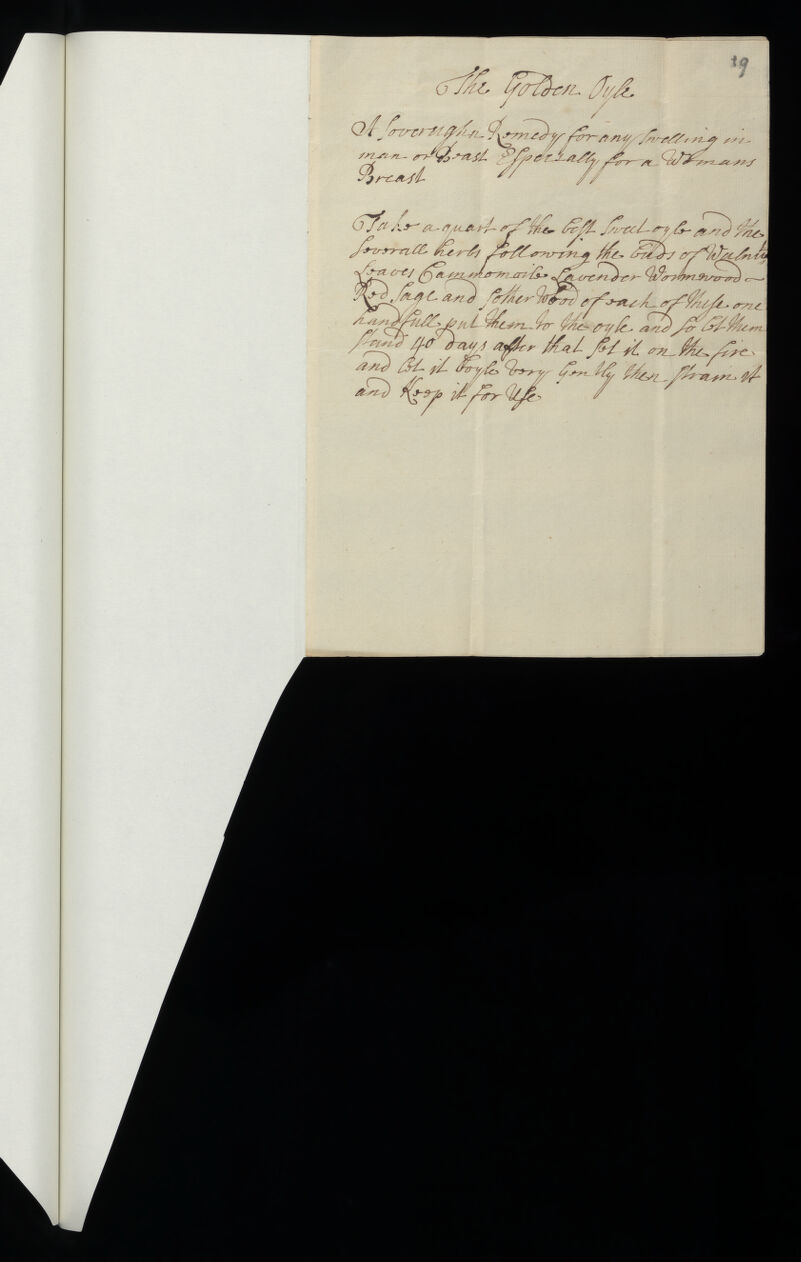 19
The Golden Oyle
A Sovereighn Remedy for any Swelling in
man or Beast Especially for a Womans
Breast
Take a quart of the best Sweet oyle and the
Severall herbs following the buds of
Leaves Cammomoile Lavender Wormwood
Red Sage and Sotherwood of each of these one
handfull put them to the oyle and so let them
stand 40 days after that set it on the fire
and let it boyle very Gently then strain it
and Keep it for Use